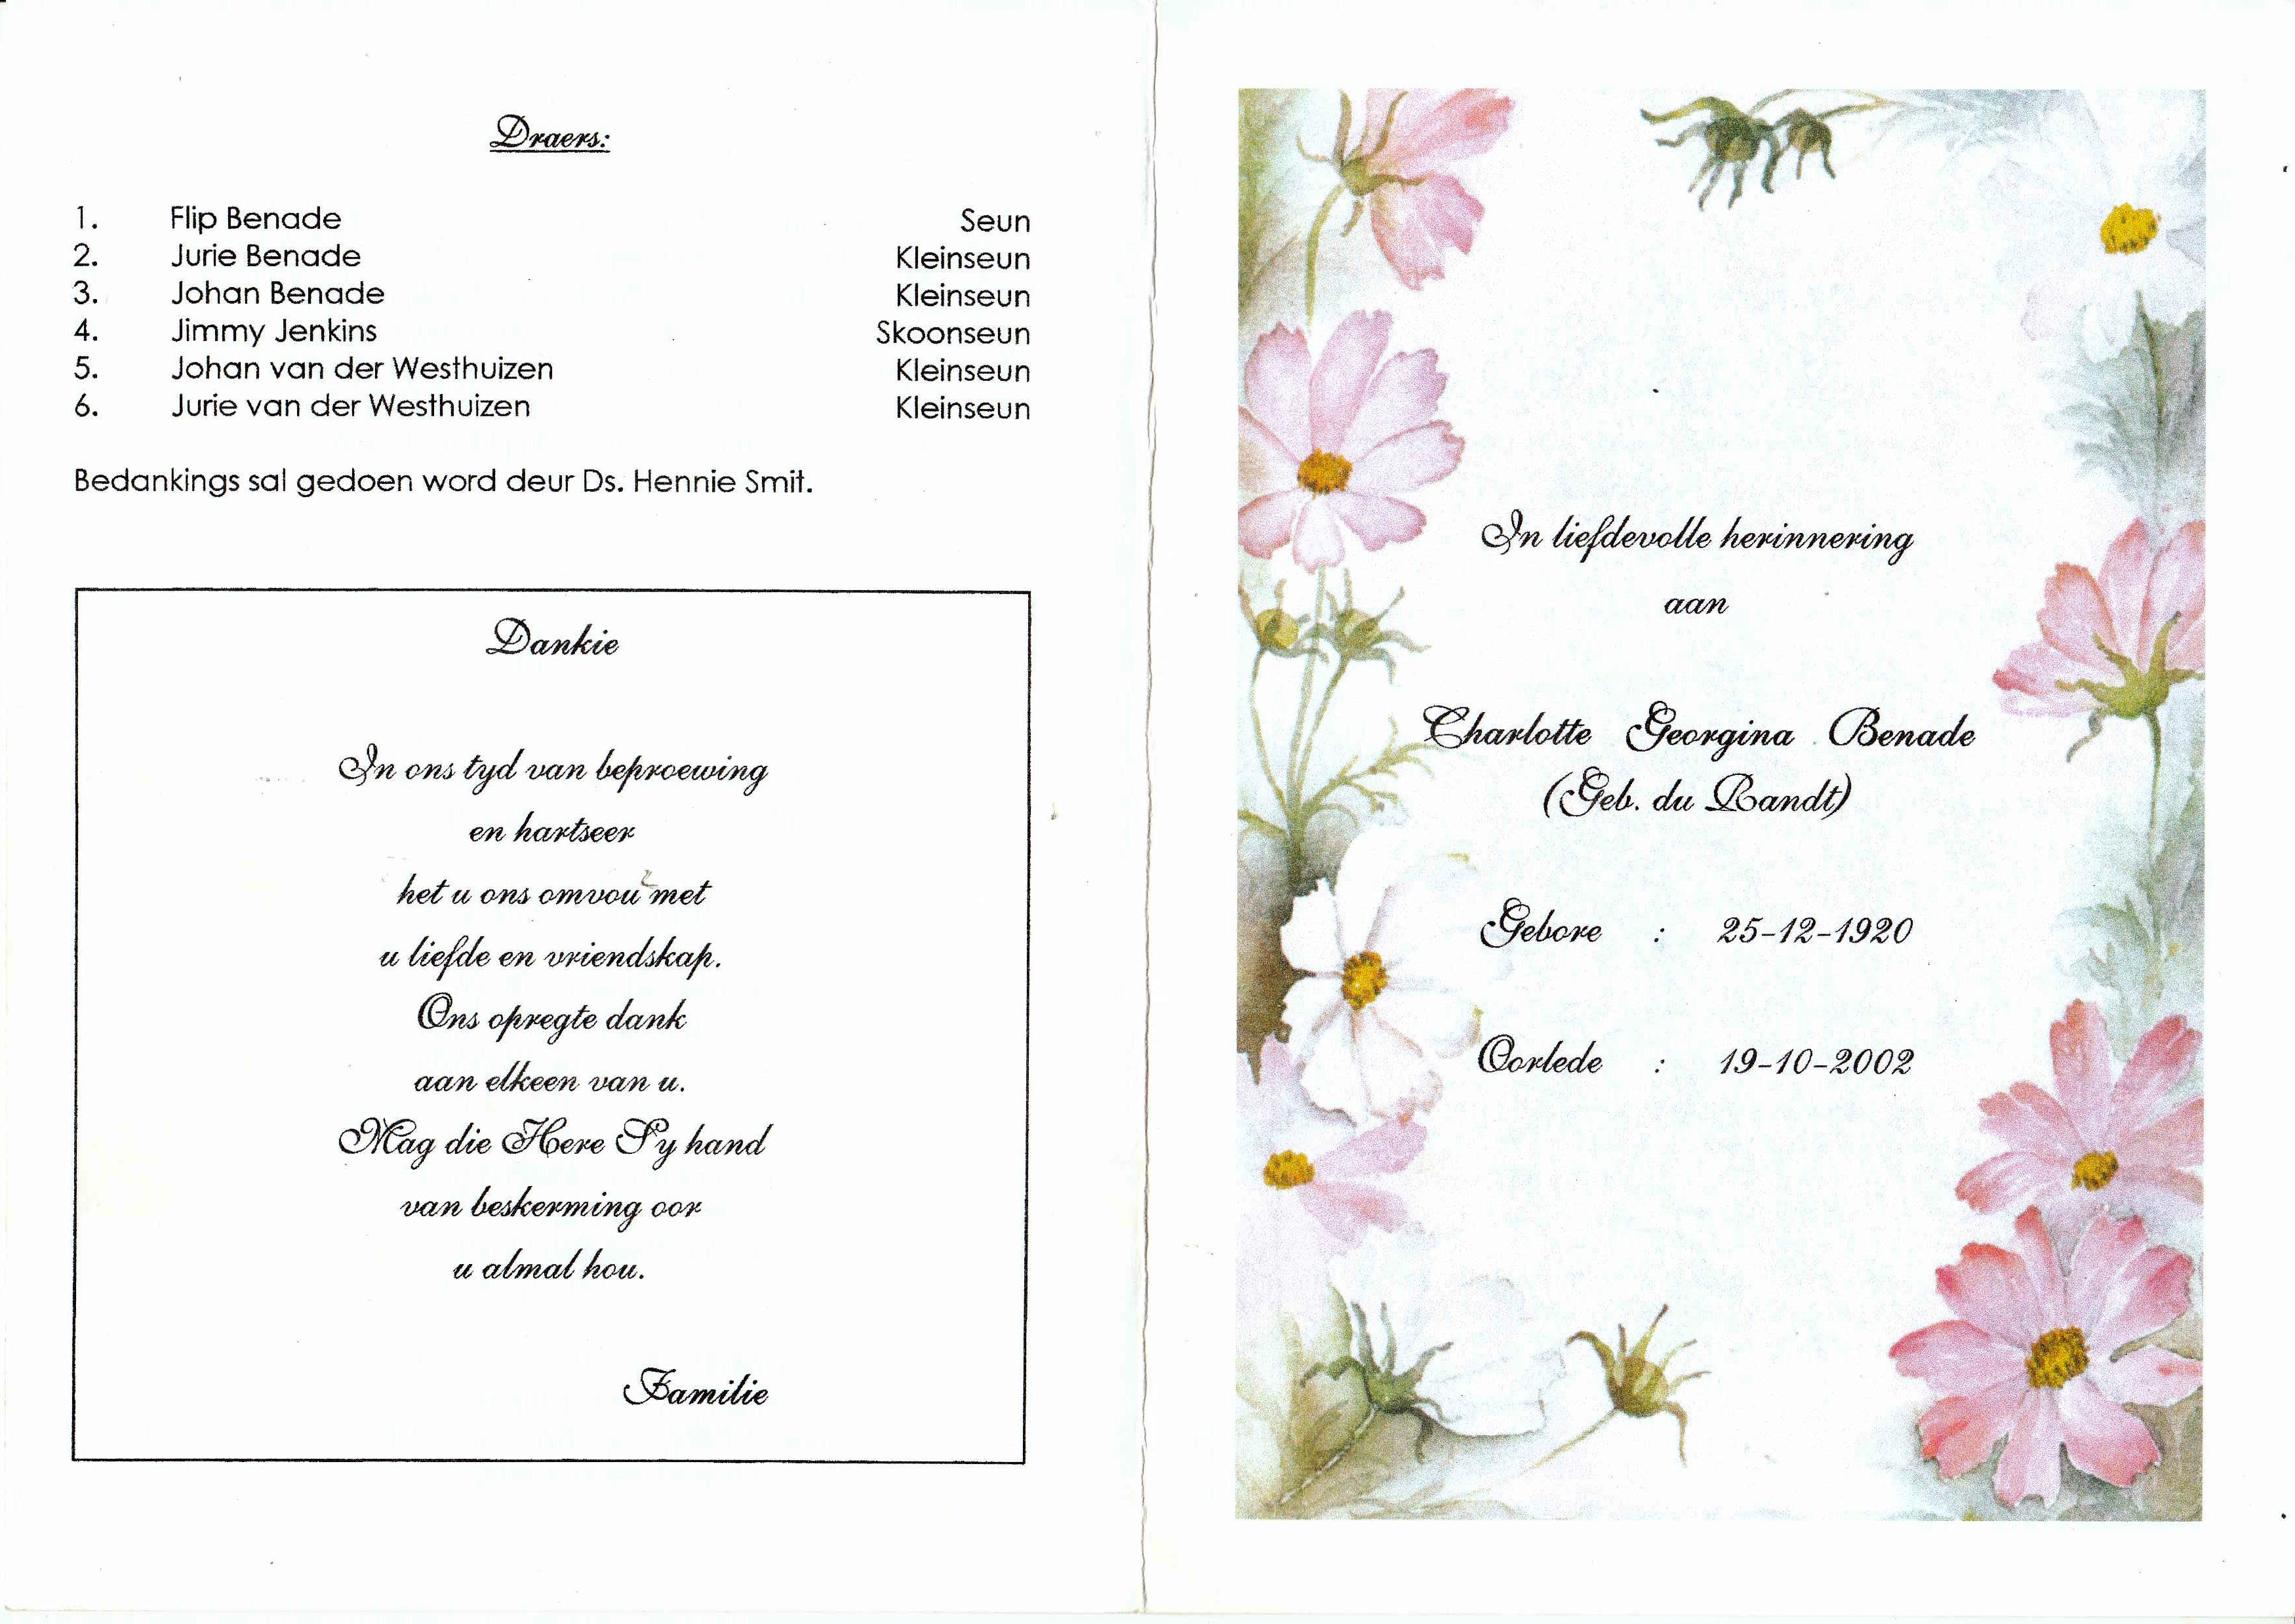 Draers:
1. Flip Benade Seun
2. Jurie Benade Kleinseun
3. Johan Benade Kleinseun
4. Jimmy Jenkins Skoonseun
5. Johan van der Westhuizen Kleinseun
6. Jurie van der Westhuizen Kleinseun
Bedankings sal gedoen word deur Ds. Hennie Smit.
Dankie
In ons tyd van beproewing
en hartseer
het u ons omvou met
u liefde en vriendskap.
Ons opregte dank
aan elkeen van u.
Mag die Here Sy hand
van beskerming oor
u almal hou.
Familie
In liefdevolle herinnering
aan
Charlotte Georgina Benade
(Geb. du Randt)
Gebore : 25-12-1920
Oorlede : 19-10-2002